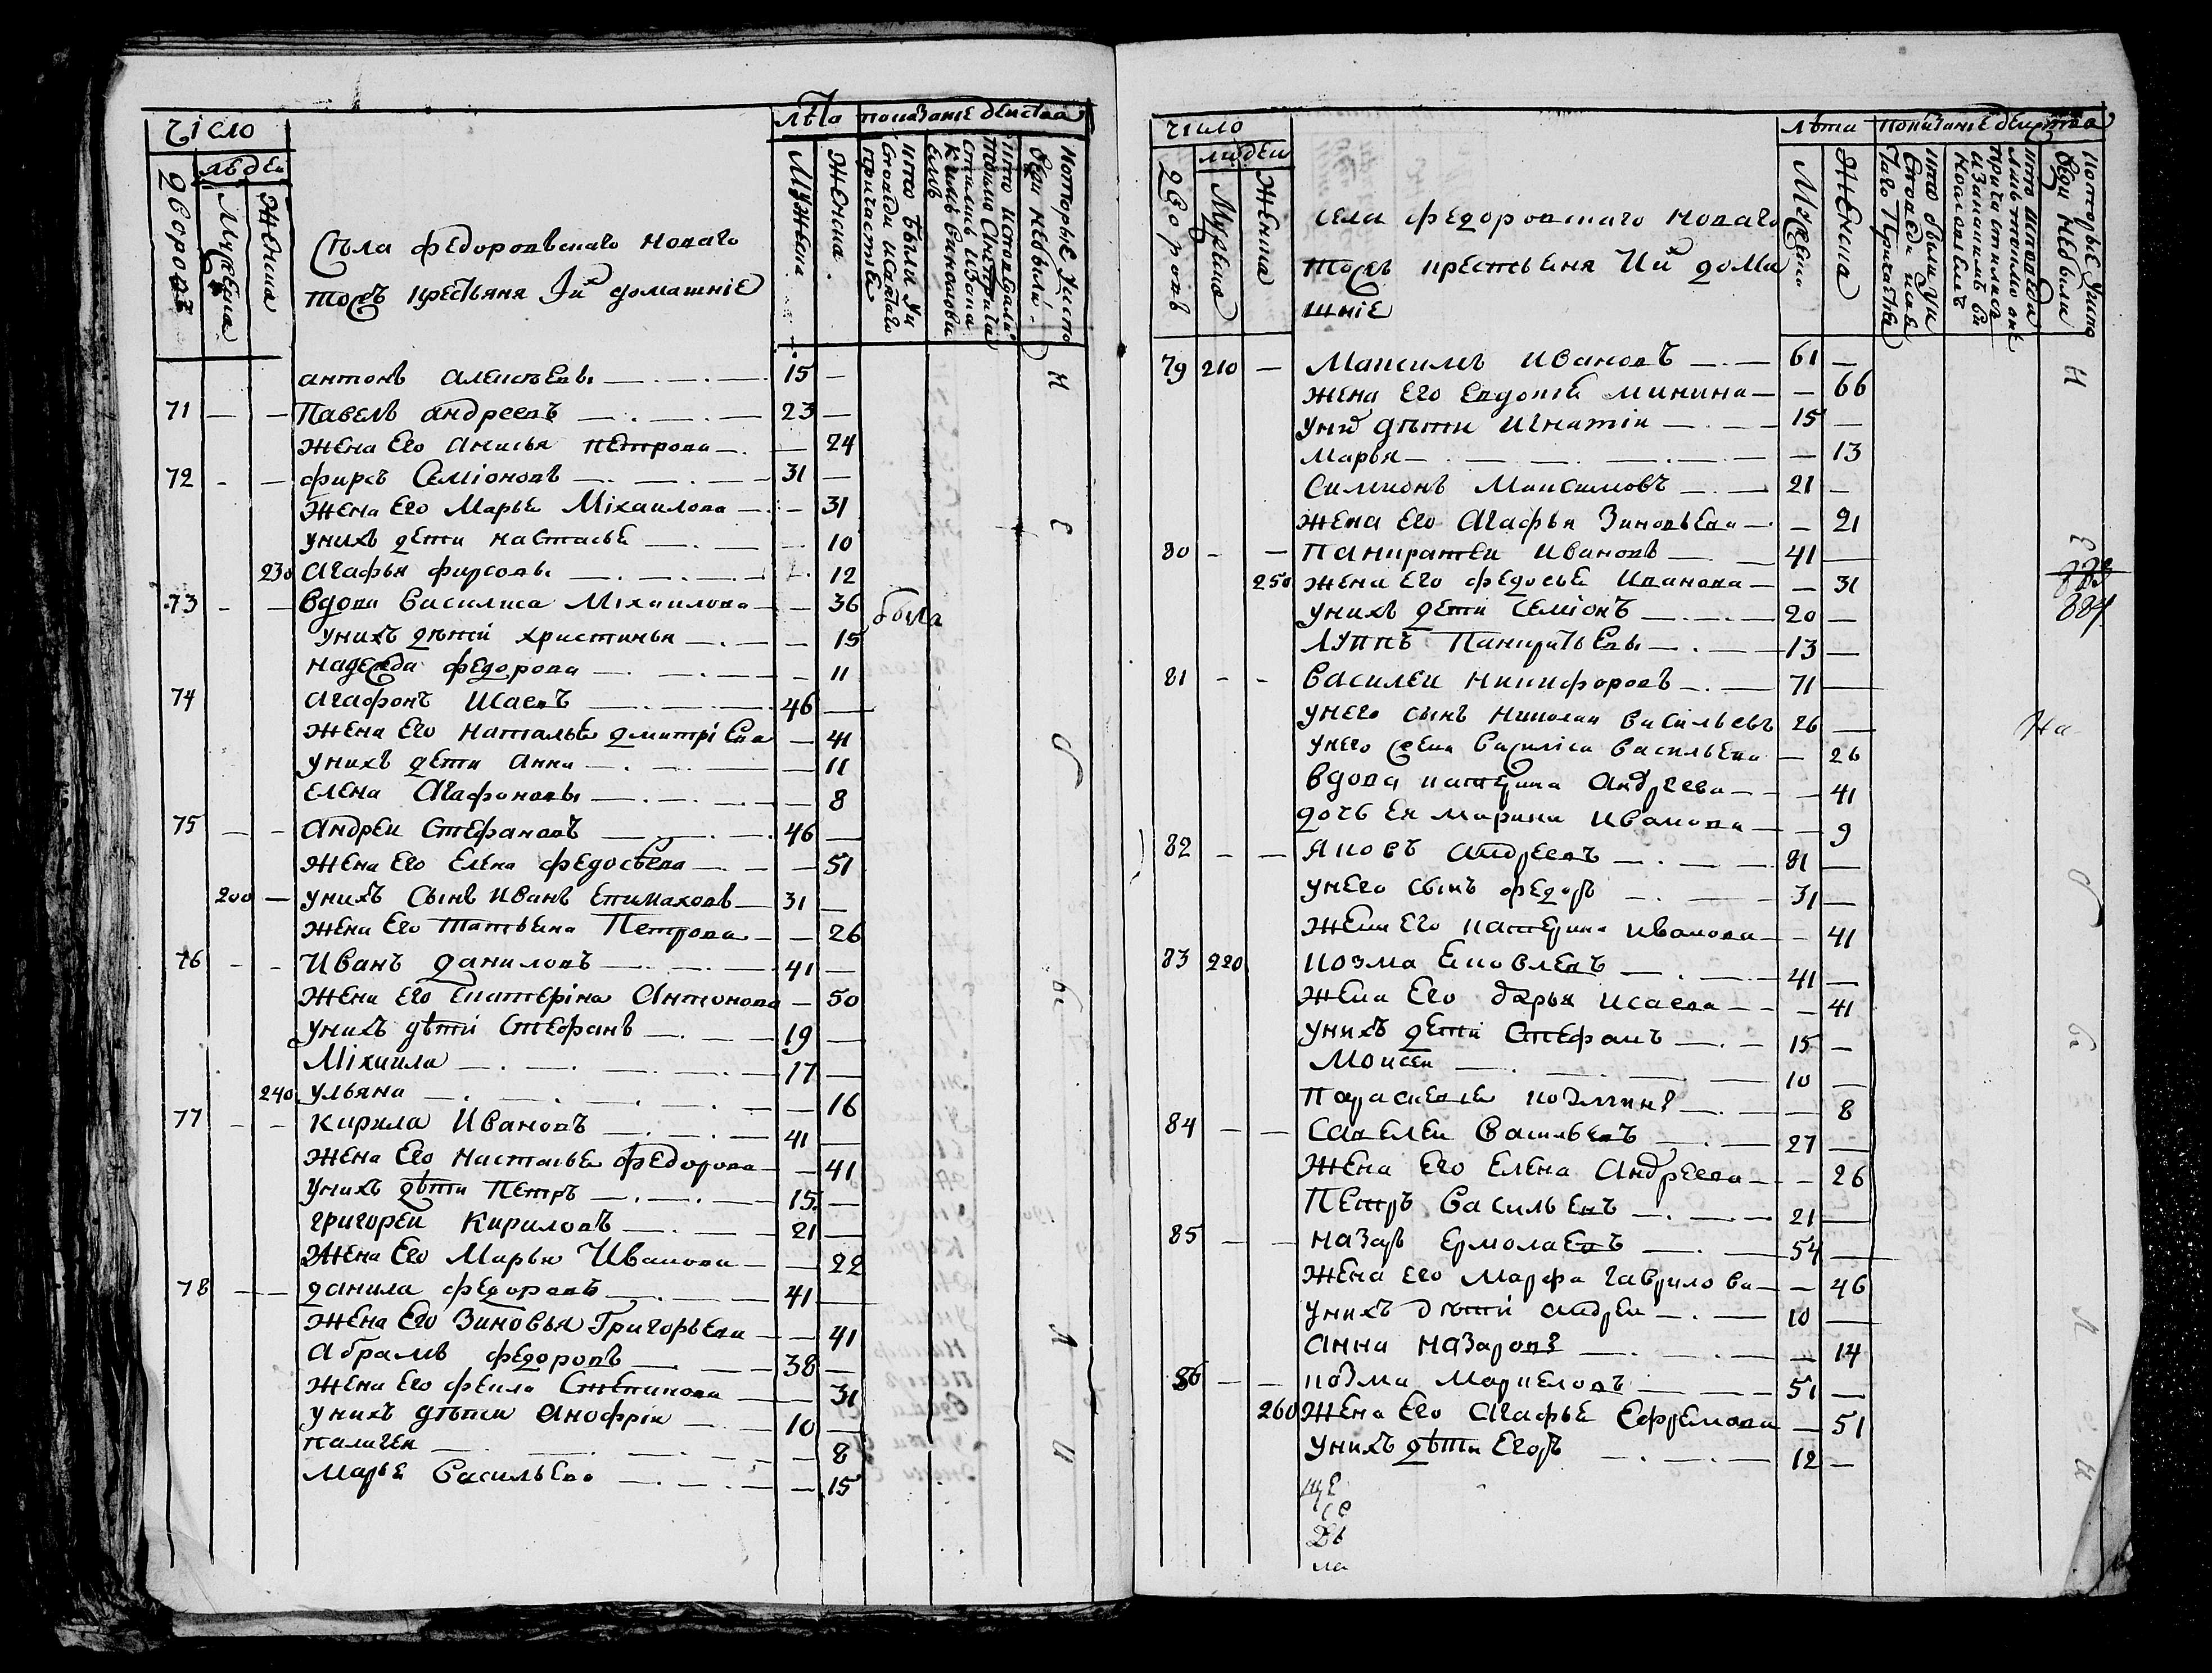 число
людеи
дворовъ
Мужеска
Женска
Села федоровскаго новаго
тожъ крестьяня Ихъ домашніе
лѣта
Мужска
Женска
показаніе действа
кто были у исповеди исвятаго причастия
которые у исповеди небыли
антонъ алексѣевы 15 —
71 — — Павелъ андреевъ 23 —
жена Его анисья петрова — 24
72 - — фирсъ Семіоновъ 31 —
жена Его Марье Міхаилова — 31
унихъ дети настасье — 10
230 агафья фирсовы — 12
73 - — вдова Василиса Міхаилова — 36 была
унихъ дѣтй христинья — 15
надежда федорова — 11
74 агафонъ Исаевъ 46 —
жена Его наталье дмитріева — 41
унихъ дети анна — 11
елена агафоновы — 8
75 — — андреи Стефановъ 46 —
жена Его Елена федосѣева — 51
200 — унихъ Сынъ Иванъ епимаховъ 31 —
жена Его татьяна Петрова — 26
76 - - Иванъ даниловъ 41 —
жена Его Екатеріна антонова — 50
унихъ дѣти Стефанъ 19 —
Міхаила 17 —
240 ульяна — 16
77 - - Кирила Ивановъ 41 —
жена Его настасье федорова — 41
унихъ дѣти Петръ 15 —
григореи Кириловъ 21 —
жена Его Марья Иванова — 22
78 — — данила федоровъ 41 —
жена Его Зиновья Григорьева — 41
абрамъ федоровъ 38 —
жена Его фекла Степанова — 31
унихъ дѣти анофріи 10 —
— 8
марье Васильева — 15
Н Е б ы л и
число
людеи
дворовъ
Мужеска
Женска
села федоровскаго новаго
тожъ крестьяня Ихъ дома
шніе
лѣта
Мужеска
Женска
показаніе действа
которые уиспо веди небыли
79 210 — Максимъ Ивановъ 61 —
жена его евдокіи минина — 66
унихъ дѣти игнатіи 15 —
Марья — 13
симионъ Максимовъ 21 —
жена его агафья Зиновьева — 21
80 - — Панкратеи Ивановъ 41 —
250 жена его федосье Иванова — 31
унихъ дети семіонъ 20 —
Луппъ Панкратьевы 13 —
81 - - Василеи Никифоровъ 71 —
унего сынъ николаи васильевъ 26 —
унего жена василіса васильева — 26
вдова катерина андреева — 41
дочь ея марина иванова — 9
82 — — Яковъ андреевъ 81 —
унего сынъ федоръ 31 —
жена его катерина иванова — 41
83 220 козма Ековлевъ 41 —
жена его дарья исаева — 41
унихъ дети Стефанъ 15 —
Моисеи 10 —
Параскевье козмины — 8
84 — — Савелеи Васильевъ 27 —
жена его елена андреева — 26
Петръ васильевъ 21 —
85 — — назаръ ермолаевъ 54 —
жена его марфа гаврилова — 46
унихъ дѣти андреи 10 —
анна назаровы — 14
86 — — козма Маркеловъ 51 —
260 жена его агафье ефремова — 51
унихъ дѣти егоръ 12 —
Н е б ы л и
884
На